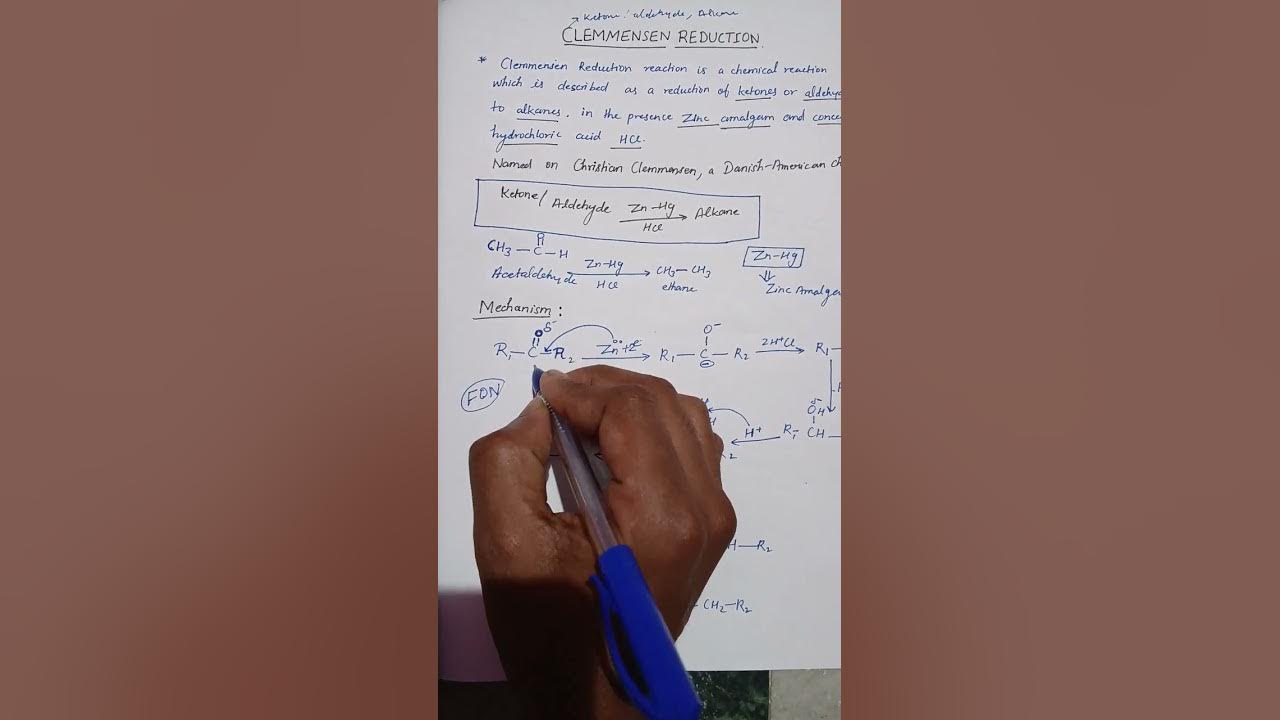 Ketone : aldehyde, Alkane
CLEMMENSEN REDUCTION
* Clemmensen Reduction reaction is a chemical reaction
which is described as a reduction of ketones or aldehy
to alkanes. in the presence Zinc amalgam and conce
hydrochloric acid HCl.
Named on Christian Clemmensen, a Danish-American ch
Ketone/Aldehyde Zn-Hg HCl Alkane
CH3-C-H
O
Acetaldehyde Zn-Hg HCl CH3-CH3
ethane
Zn-Hg
Zinc Amalga
Mechanism :
R1-C-R2 O δ- Zn+2e- R1-C-R2 O- ⊖ 2H+Cl R1-
FON
H+ R1-CH- OH
H-R2
CH2-R2